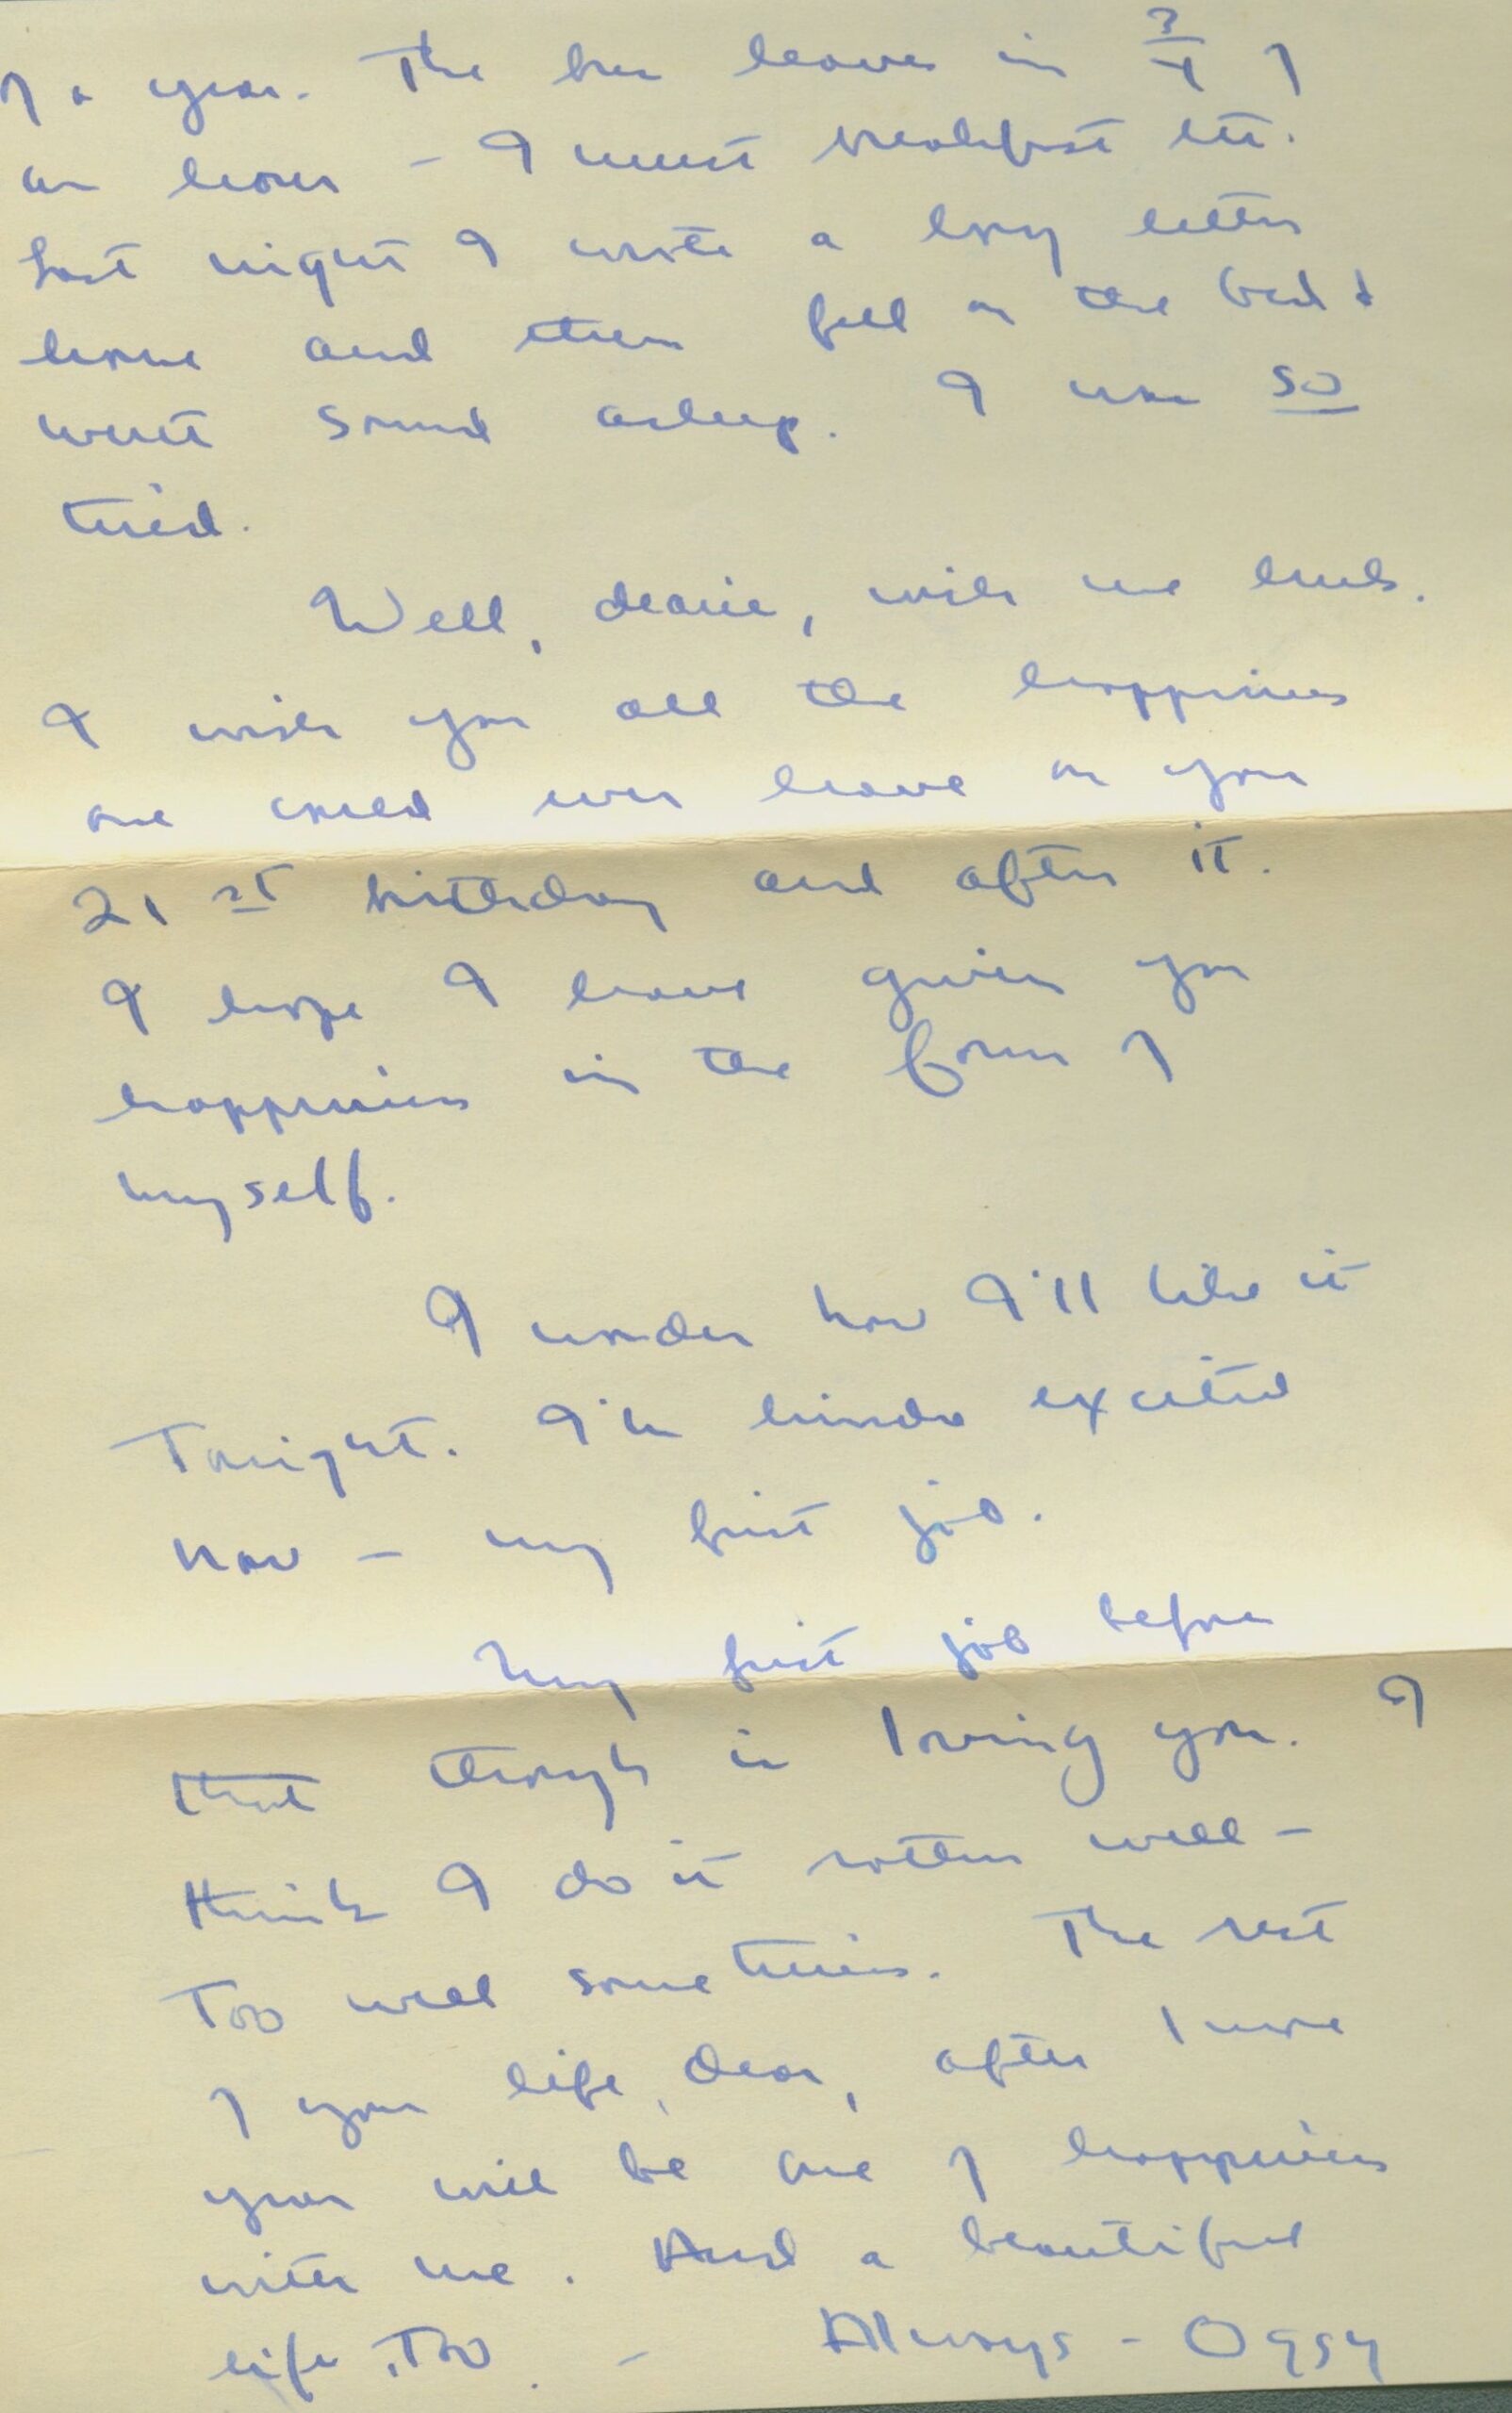 of a year. The bus leaves in 3/4 of
an hour – I must breakfast etc.
Last night I wrote a long letter
home and then fell on the bed &
went sound asleep. I was so
tired.
Well, dearie, wish me luck.
I wish you all the happiness
one could ever have on your
21st birthday and after it.
I hope I have given you
happiness in the form of
myself.
I wonder how I'll like it
Tonight. I'm kinda excited
now – my first job.
My first job before
that though is loving you. I
think I do it rather well –
Too well sometimes. The rest
of your life, dear, after 1 more
year will be one of happiness
with me. And a beautiful
life, Too. – Always – Oggy